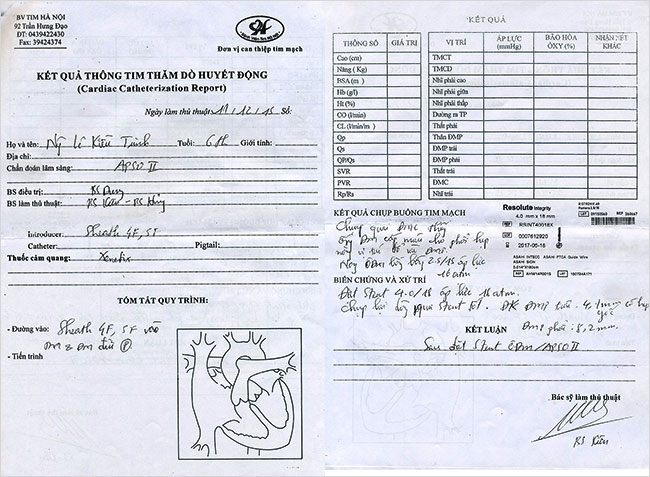 BV TIM HÀ NỘI
92 Trần Hưng Đạo
ĐT: 0439422430
Fax: 39424374
Đơn vị can thiệp tim mạch
KẾT QUẢ THÔNG TIM THĂM DÒ HUYẾT ĐỘNG
(Cardiac Catheterization Report)
Ngày làm thủ thuật 11/12/15 Số:
Họ và tên: Lê Kiều Trinh Tuổi: 6th Giới tính:
Địa chỉ:
Chẩn đoán lâm sàng: APSO II
BS điều trị: BS
BS làm thủ thuật: BS Kiên - BS
Introducer: Sheath 4F, 5F
Catheter: Pigtail:
Thuốc cảm quang: Xenetix
TÓM TẮT QUY TRÌNH:
- Đường vào: Sheath 4F, 5F vào
ĐM & ĐM đùi P
- Tiến trình
KẾT QUẢ
THÔNG SỐ GIÁ TRỊ VỊ TRÍ ÁP LỰC (mmHg) BÃO HÒA ÔXY (%) NHẬN XÉT KHÁC
Cao (cm) TMCT
Nặng ( KG) TMCD
BSA (m ) Nhĩ phải cao
Hb (g/l) Nhĩ phải giữa
Ht (%) Nhĩ phải thấp
CO (l/min) Đường ra TP
CL (l/min/m ) Thất phải
Qp Thân ĐMP
Qs ĐMP trái
QP/Qs ĐMP phải
SVR Thất trái
PVR ĐMC
Rp/Rs Nhĩ trái
KẾT QUẢ CHỤP BUỒNG TIM MẠCH
Resolute Integrity
4.0 mm x 18 mm
0007612920
2017-06-16
ASAHI INTECC ASAHI PTCA Guide Wire
ASAHI SION
Chụp quai ĐMC thấy
ống ĐM cấp máu cho phổi hẹp
áp lực
16 atm
BIẾN CHỨNG VÀ XỬ TRÍ
Đặt Stent 4.0/18 áp lực 16 atm.
Chụp lại stent tốt. ĐK ĐMP trái: 4,1mm có hẹp
ĐMP phải: 8,2mm.
KẾT LUẬN
Sau đặt Stent ÔĐM/APSO II
Bác sỹ làm thủ thuật
BS Kiên